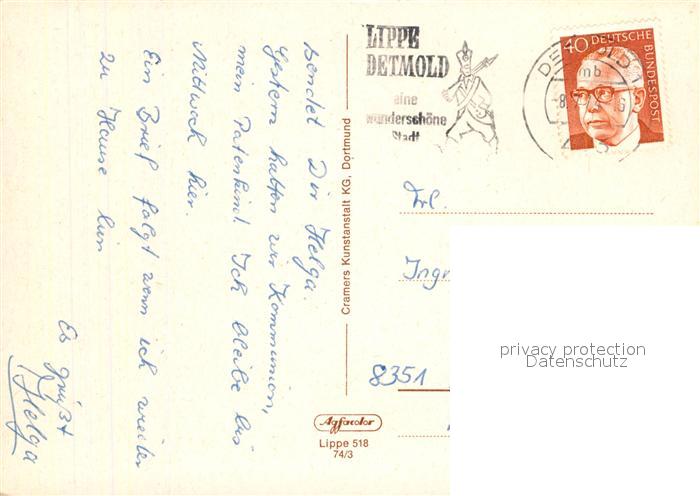 LIPPE
DETMOLD
eine
wunderschöne
Stadt
DETMOLD 1
mb
-8.
40 DEUTSCHE
BUNDESPOST
Sendet Dir Helga.
Gestern hatten wir Kommunion,
mein Patenkind. Ich bleibe bis
Mittwoch hier.
Ein Brief folgt wenn ich wieder
zu Hause bin
Es grüßt
Helga
Cramers Kunstanstalt KG, Dortmund
Frl.
Ingr
8351
Agfacolor
Lippe 518
74/3
privacy protection
Datenschutz